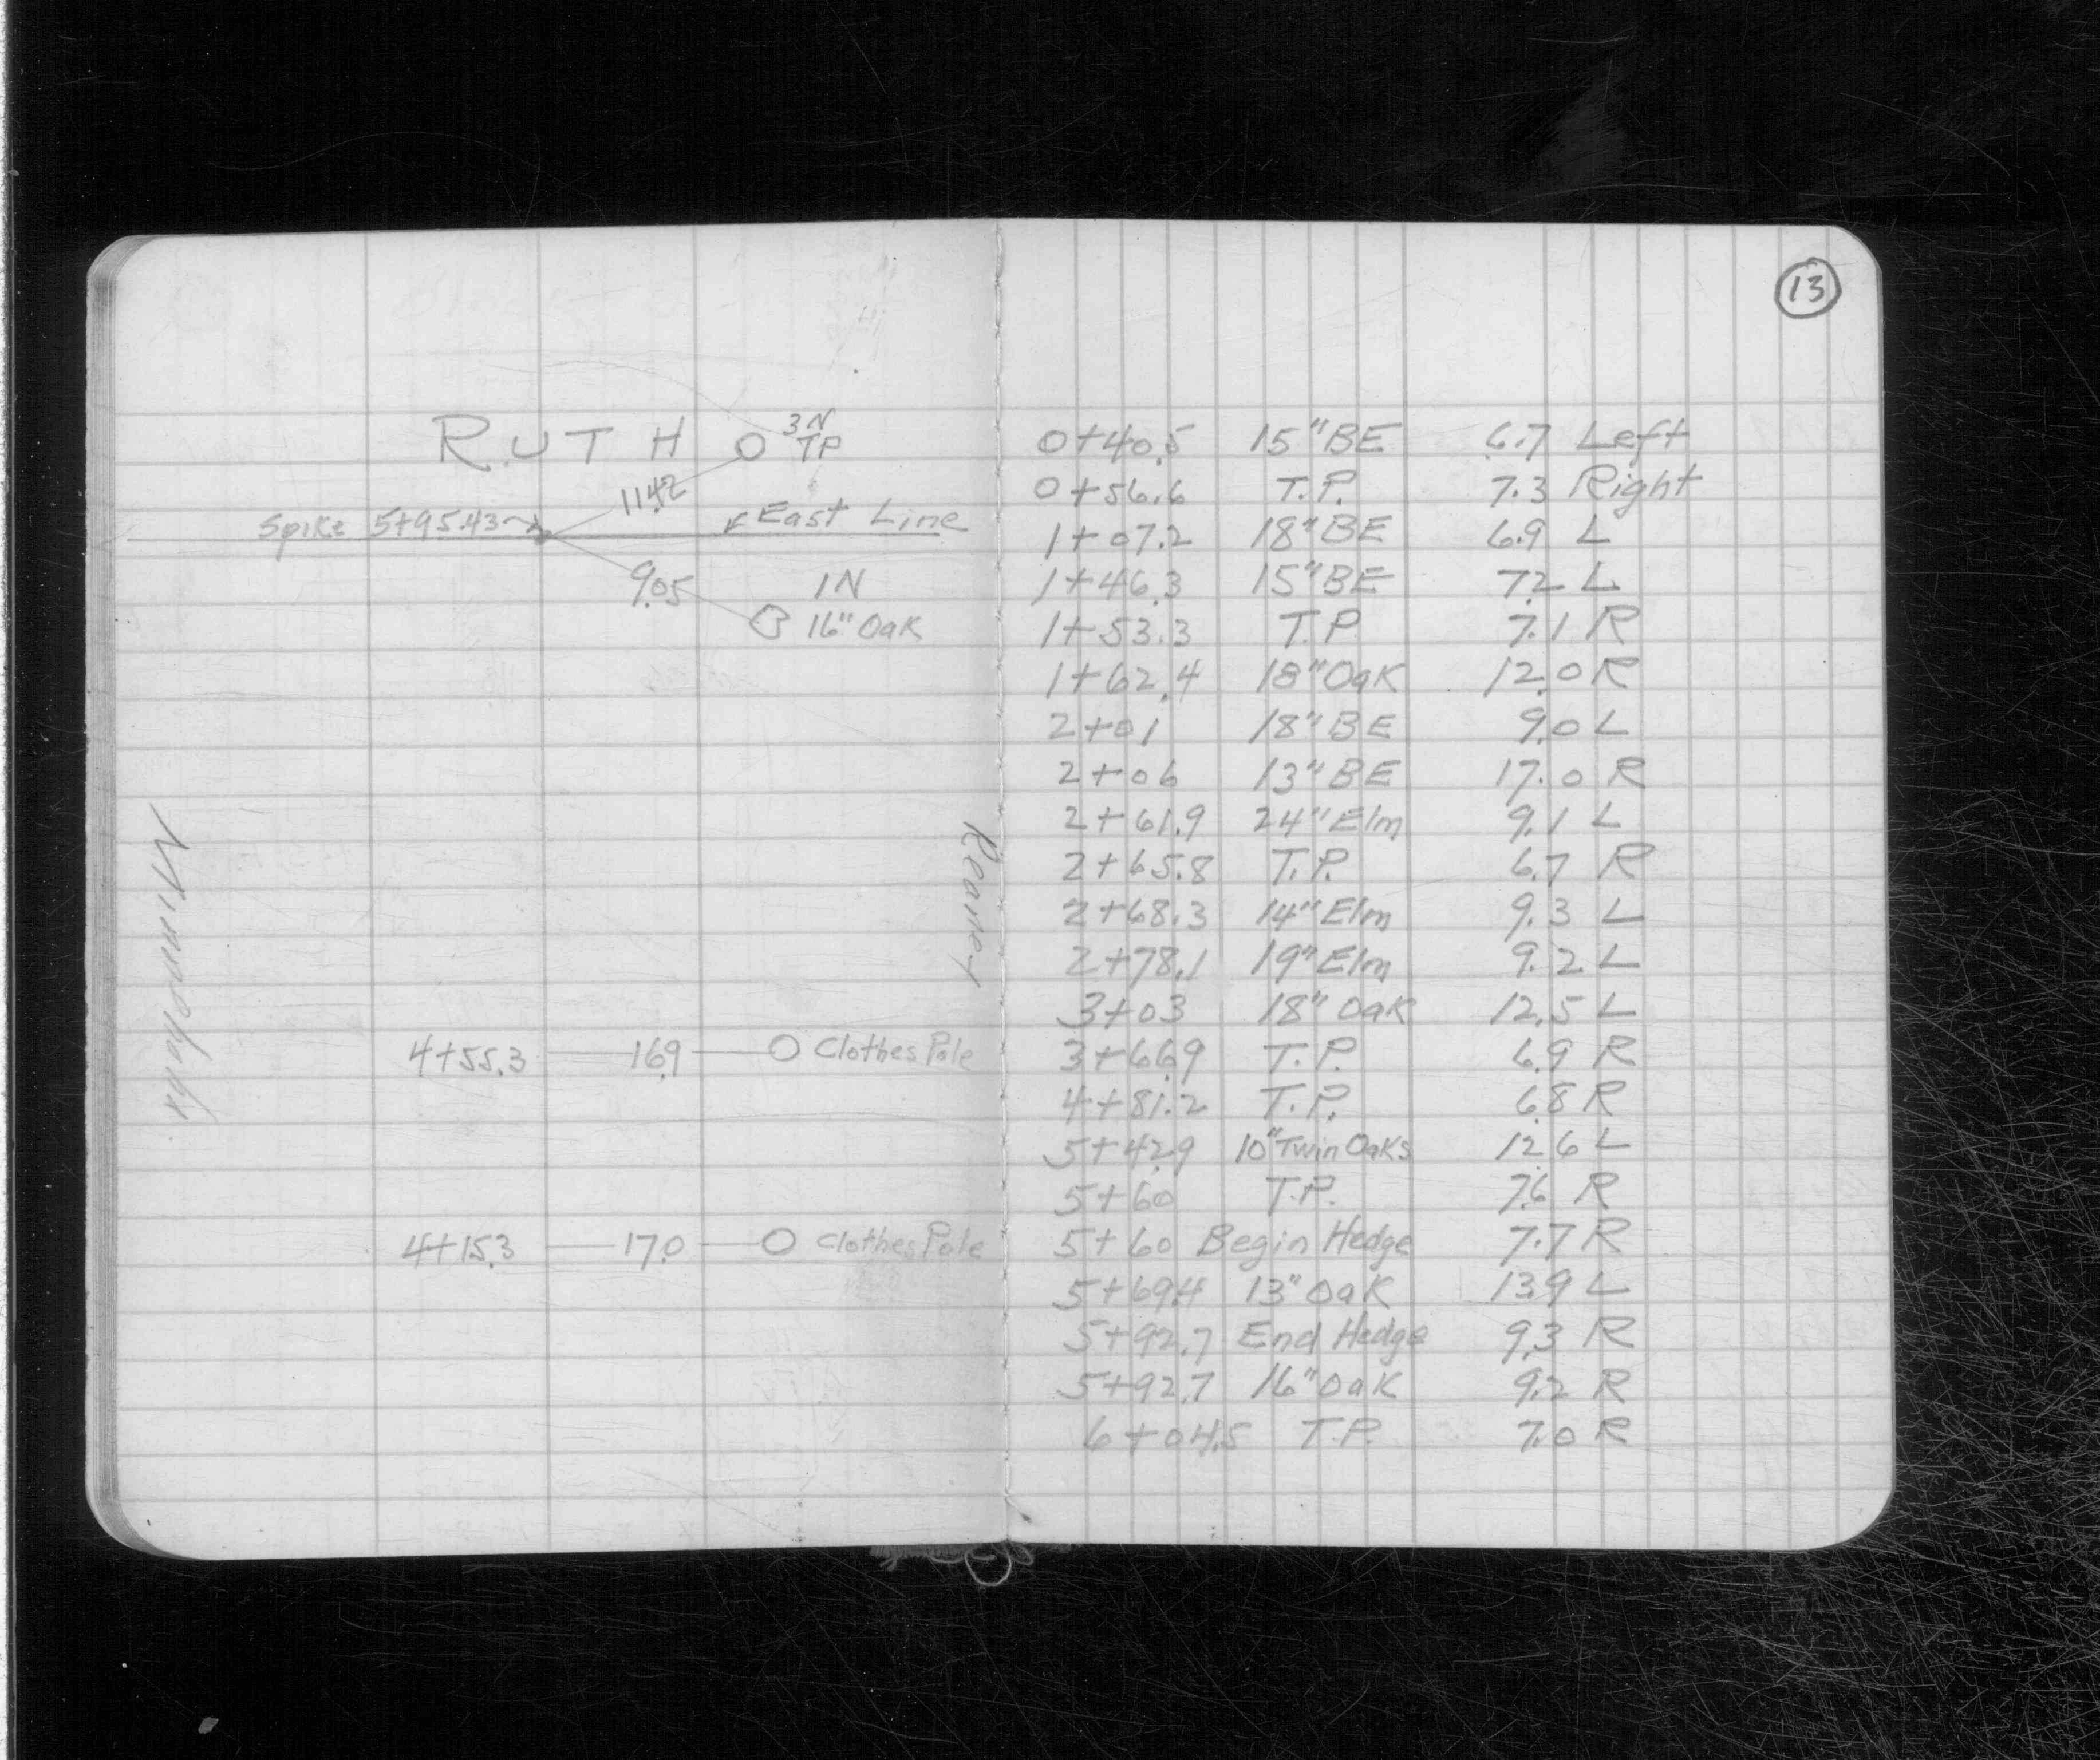 13
RUTH
3N
TP
11.42
Spike 5+95.43
East Line
9.05
1N
16" Oak
Minnehaha
Reaney
4+55.3 16.9 Clothes Pole
4+15.3 17.0 Clothes Pole
0+40.5 15" BE 6.7 Left
0+56.6 T.P. 7.3 Right
1+07.2 18" BE 6.9 L
1+46.3 15" BE 7.2 L
1+53.3 T.P 7.1 R
1+62.4 18" Oak 12.0 R
2+01 18" BE 9.0 L
2+06 13" BE 17.0 R
2+61.9 24" Elm 9.1 L
2+65.8 T.P. 6.7 R
2+68.3 14" Elm 9.3 L
2+78.1 19" Elm 9.2 L
3+03 18" Oak 12.5 L
3+66.9 T.P. 6.9 R
4+81.2 T.P. 6.8 R
5+42.9 10" Twin Oaks 12.6 L
5+60 T.P. 7.6 R
5+60 Begin Hedge 7.7 R
5+69.4 13" Oak 13.9 L
5+92.7 End Hedge 9.3 R
5+92.7 16" Oak 9.2 R
6+04.5 T.P. 7.0 R